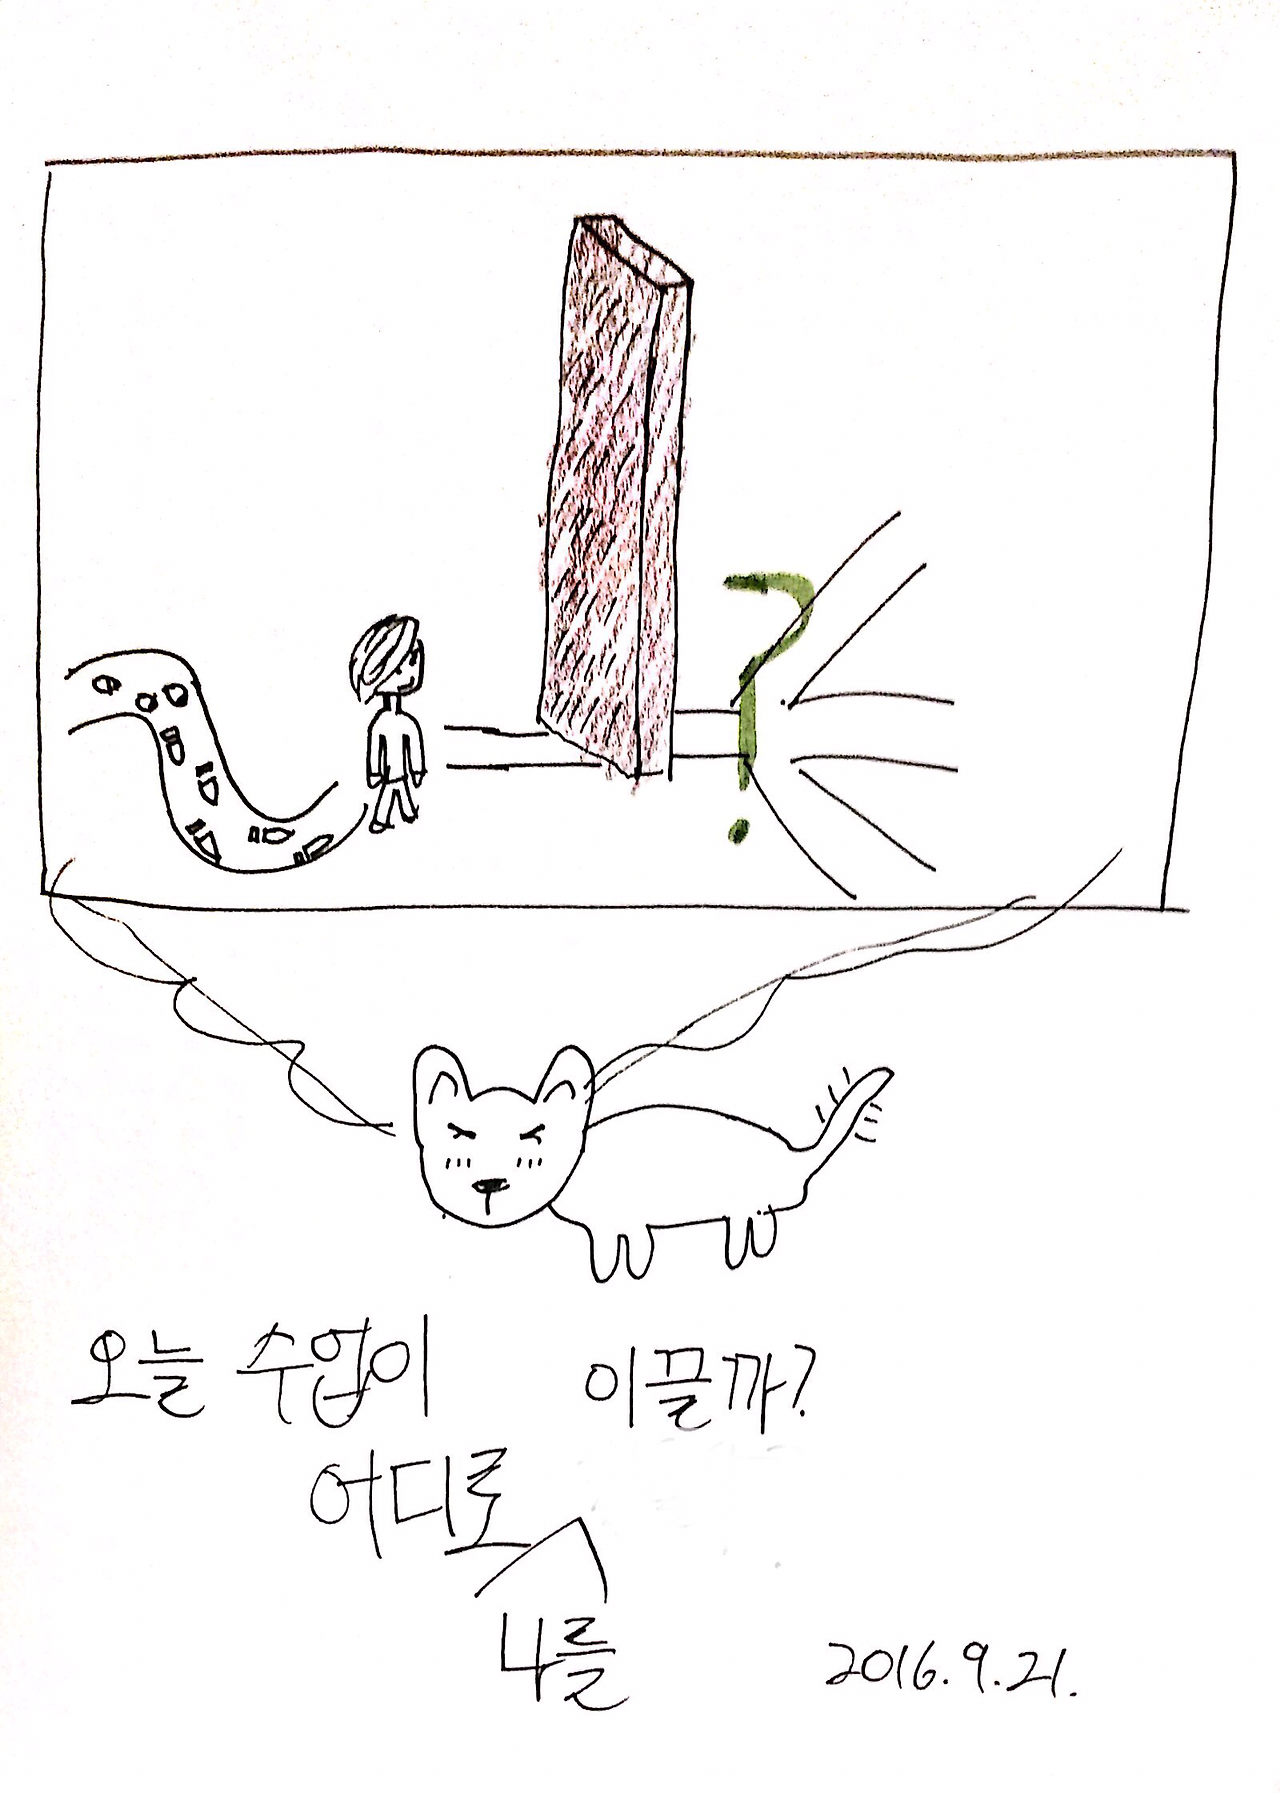 ?
오늘 수업이 이끌까?
어디로
나를
2016.9.21.